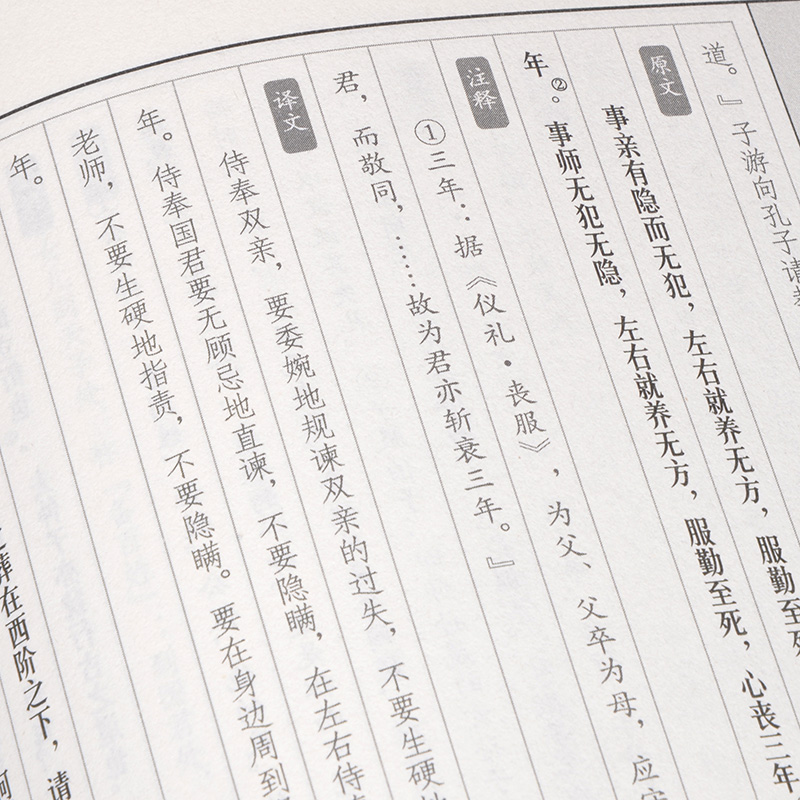 道。』子游向孔子请
原文
事亲有隐而无犯，左右就养无方，服勤至死
年②。事师无犯无隐，左右就养无方，服勤至死，心丧三年
注释
①三年：据《仪礼·丧服》，为父、父卒为母，应
君，而敬同，……故为君亦斩衰三年。』
译文
侍奉双亲，要委婉地规谏双亲的过失，不要生硬
年。侍奉国君要无顾忌地直谏，不要隐瞒，在左右侍
老师，不要生硬地指责，不要隐瞒。要在身边周到
年。
葬在西阶之下，请